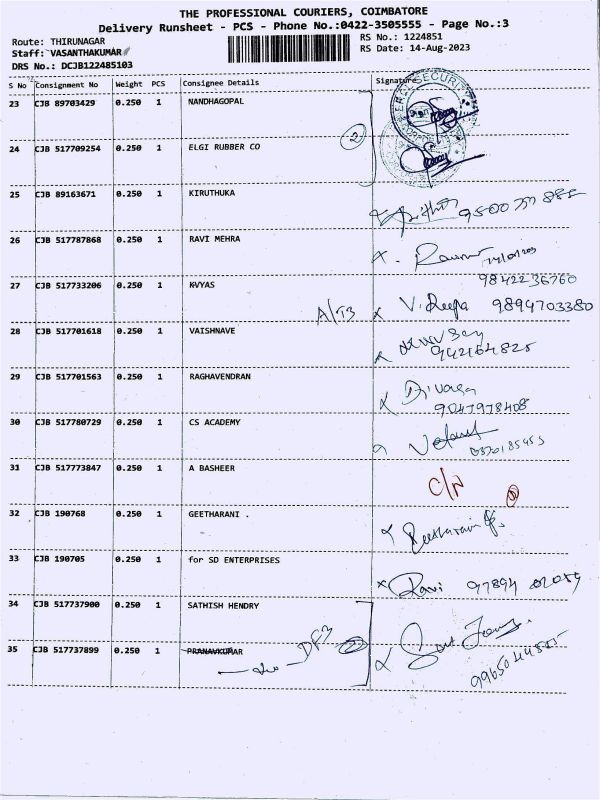 THE PROFESSIONAL COURIERS, COIMBATORE
Delivery Runsheet - PCS - Phone No.:0422-3505555 - Page No.:3
Route: THIRUNAGAR
Staff: VASANTHAKUMAR
DRS No.: DCJB122485103
RS No.: 1224851
RS Date: 14-Aug-2023
S No Consignment No Weight PCS Consignee Details Signature
23 CJB 89703429 0.250 1 NANDHAGOPAL
2
24 CJB 517709254 0.250 1 ELGI RUBBER CO
25 CJB 89163671 0.250 1 KIRUTHUKA
26 CJB 517787868 0.250 1 RAVI MEHRA
9842236760
27 CJB 517733206 0.250 1 KVYAS
A/T3 x V. Deepa 9894703380
28 CJB 517701618 0.250 1 VAISHNAVE
942164825
29 CJB 517701563 0.250 1 RAGHAVENDRAN
9047978408
30 CJB 517780729 0.250 1 CS ACADEMY
31 CJB 517773847 0.250 1 A BASHEER
C/N
32 CJB 190768 0.250 1 GEETHARANI .
Geetharani
33 CJB 190705 0.250 1 for SD ENTERPRISES
x Ravi 97894 02059
34 CJB 517737900 0.250 1 SATHISH HENDRY
35 CJB 517737899 0.250 1 PRANAVKUMAR